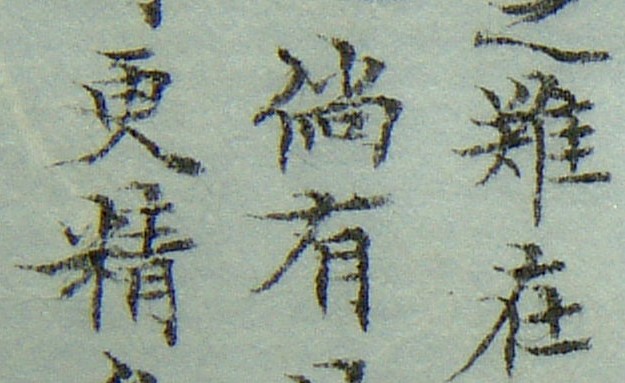 之難在
倘有
更精